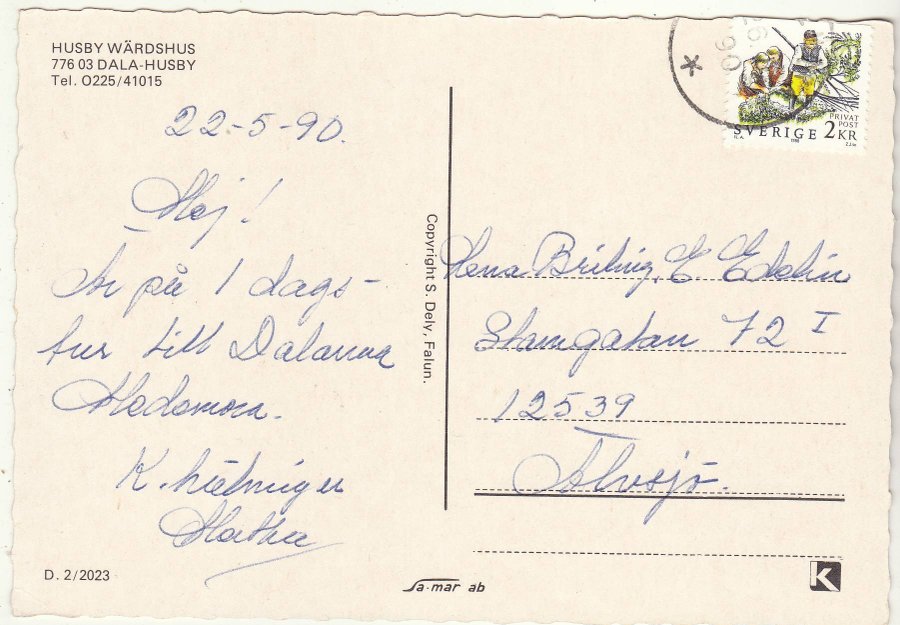 HUSBY WÄRDSHUS
776 03 DALA-HUSBY
Tel. 0225/41015
22-5-90.
Hej!
Är på 1 dags-
tur till Dalarna
Hedemora.
K. hälsningar
D. 2/2023
Copyright S. Dely, Falun.
Sa-mar ab
90
PRIVAT
POST
SVERIGE 2KR
E Edelin
Stamgatan 72 I
12539
Älvsjö.
K